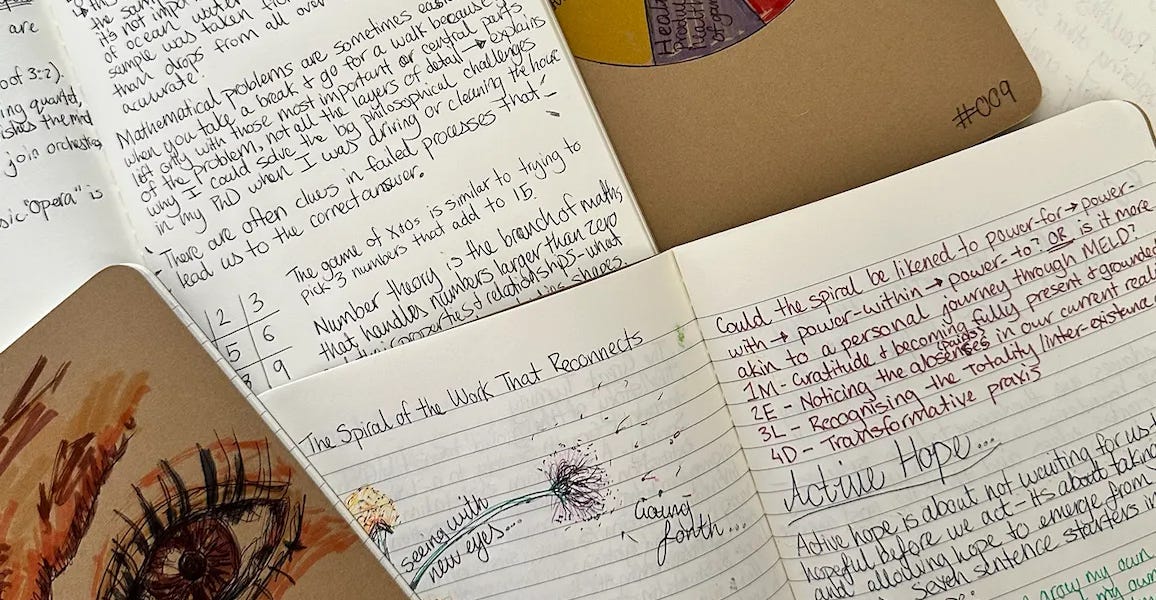 are
oof 3:2).
ing quartet,
join orchestra
sic "opera" is
the sam
it's not impor
of ocean water
sample was taken fo
than drops from all over
accurate.
Mathematical problems are sometimes easie
when you take a break & go for a walk because
left only with those most important or central parts
of the problem, not all the layers of detail → explains
why I could solve the big philosophical challenges
in my PhD when I was driving or cleaning the house
There are often clues in failed processes that
lead us to the correct answer.
The game of x+os is similar to trying to
pick 3 numbers that add to 15.
2 3
5 6
9
Number theory is the branch of maths
that handles numbers larger than zero
their properties & relationships - what
shapes.
Heal
produ
health
of
#009
The Spiral of the Work That Reconnects
seeing with
new eyes...
going
forth...
Could the spiral be likened to power-for → power-
with → power-within → power-to? OR is it more
akin to a personal journey through MELD?
1M - Gratitude & becoming fully present & grounded
2E - Noticing the absenses (pains?) in our current reali
3L - Recognising the Totality/inter-existence
4D - Transformative praxis
Active Hope...
Active hope is about not waiting for us t
hopeful before we act - its about taking
and allowing hope to emerge from
seven sentence starters in
grow my own
my own